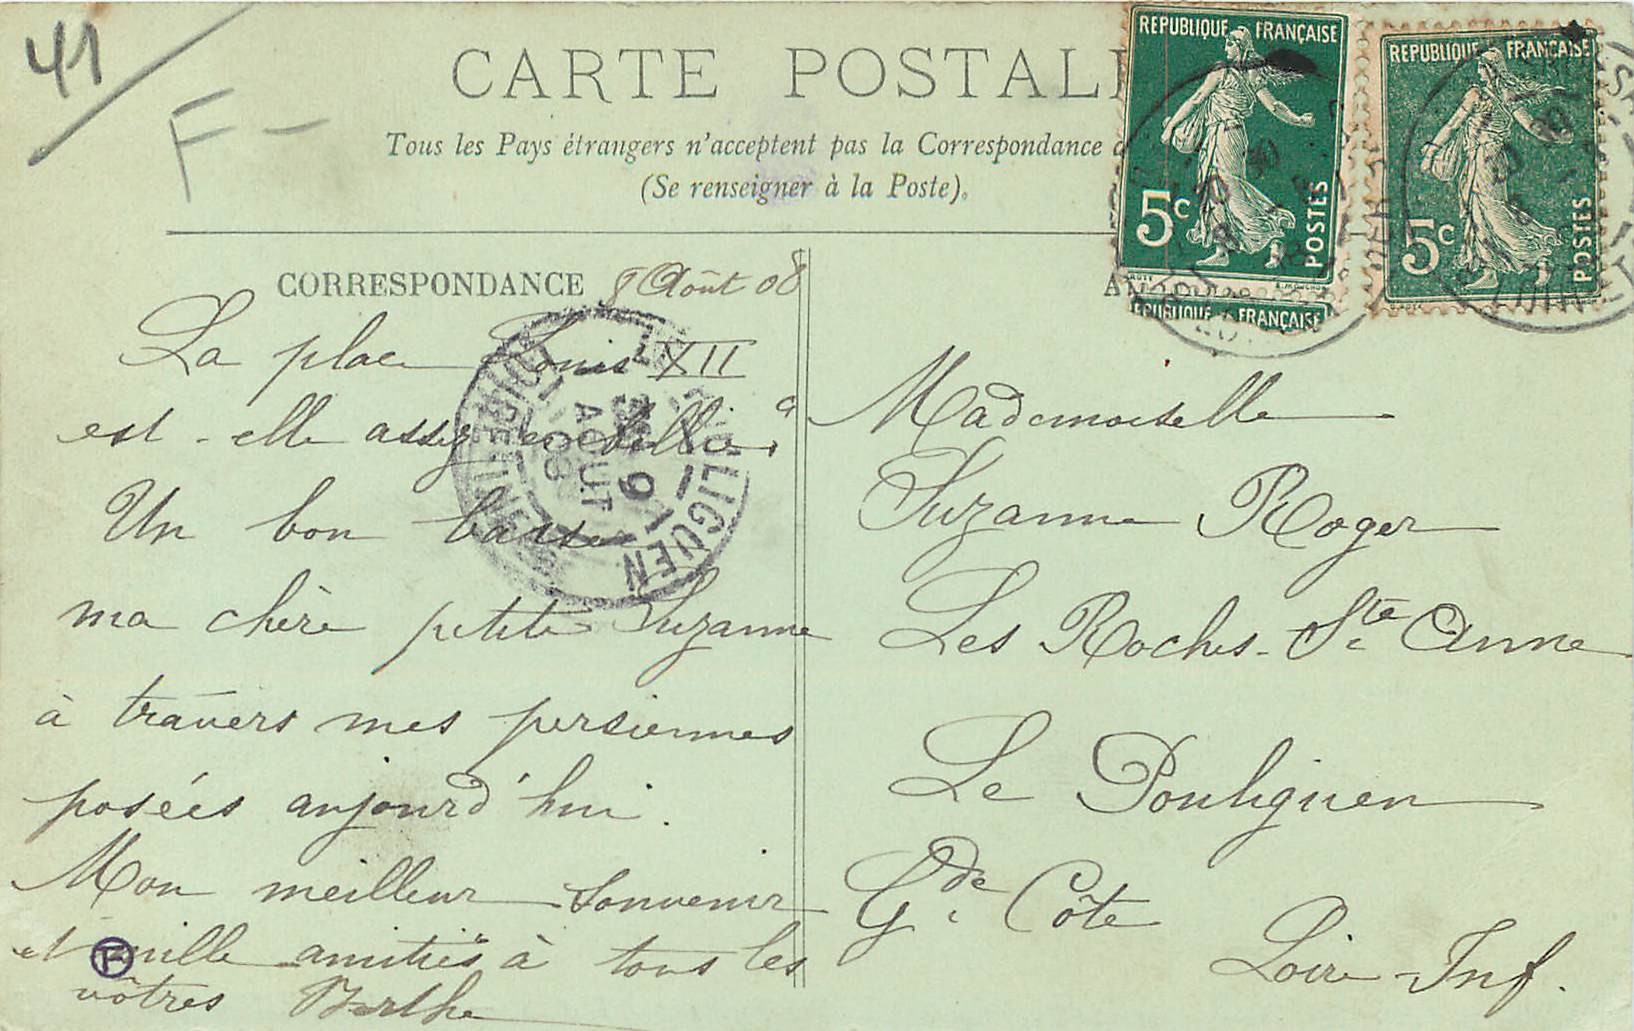 41
F -
CARTE POSTAL
Tous les Pays étrangers n'acceptent pas la Correspondance
(Se renseigner à la Poste).
REPUBLIQUE FRANÇAISE
5c
POSTES
REPUBLIQUE FRANÇAISE
5c
POSTES
REPUBLIQUE FRANÇAISE
CORRESPONDANCE 8 Août 08
La place Louis XII
est-elle assez
Un bon
ma chère petite Suzanne
à travers mes persiennes
posées aujourd'hui.
Mon meilleur souvenir
et mille amitiés à tous les
vôtres Berthe
F
LE POULIGUEN
LOIRE INF
9
AOUT
08
Mademoiselle
Suzanne Roger
Les Roches-Ste Anne
Le Pouliguen
Gde Côte
Loire-Inf.